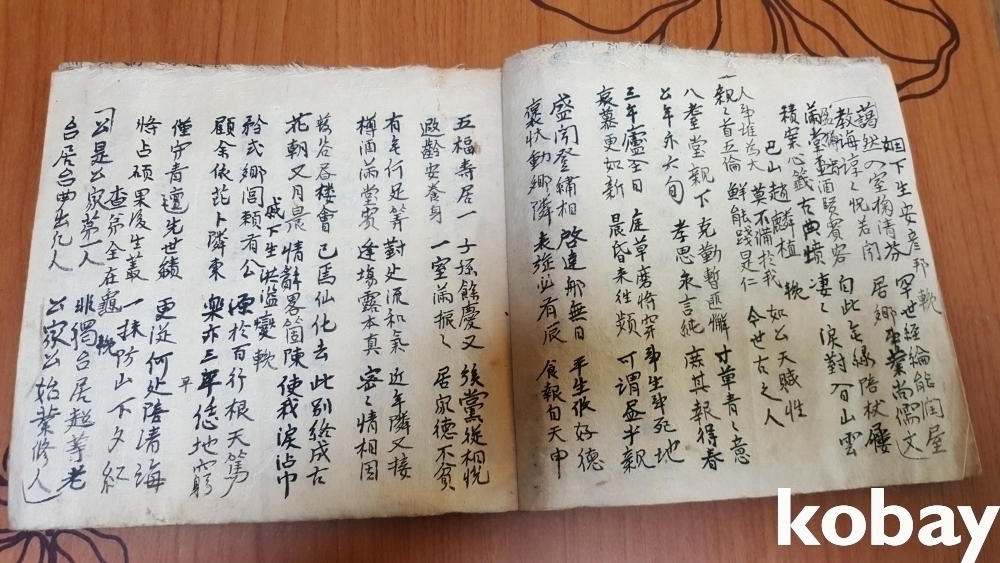 姻下生安彦邦 輓
藹然入室掬清芬 罕世經綸能潤屋
教誨諄〻怳若聞 居鄉事業尚儒文
滿堂盃酒賢賓客 自此無緣陪杖屨
積案心籤古典墳 凄〻淚對百山雲
巴山趙麟植 輓
人事誰為大 莫不備於我 如公天賦性
親〻首五倫 鮮能踐是仁 今世古之人
八耋堂親下 克勤暫匪懈 寸草青〻意
公年亦六旬 孝思永言純 庶其報得春
三年廬墓日 庭草磨將穿 事生事死地
哀慕更如新 晨昏来往頻 可謂盡乎親
盛聞登繡相 啓達那無日 平生攸好德
褒狀動鄉隣 表旌必有辰 食報自天申
五福壽居一 子孫餘慶又 族黨從相悅
遐齡安養身 一室滿振〻 居家德不貧
有無何足等 對处流和氣 近年隣又接
樽酒滿堂賓 逢場露本真 密〻情相因
落岩樓會 已焉仙化去 此別終成古
花朝又月晨 情辭畧箇陳 使我淚沾巾
戚下生洪燮 輓
矜式鄉閭賴有公 源於百行根天篤
顧余依芘卜隣東 樂亦三年恁地窮
僅守青氊先世績 更從何处陪清誨
將占碩果後生叢 一抹防山下夕紅
查弟全在龜 輓
公是公家第一人 非獨台居超等老
台居台典出凡人 公家公始業修人
kobay